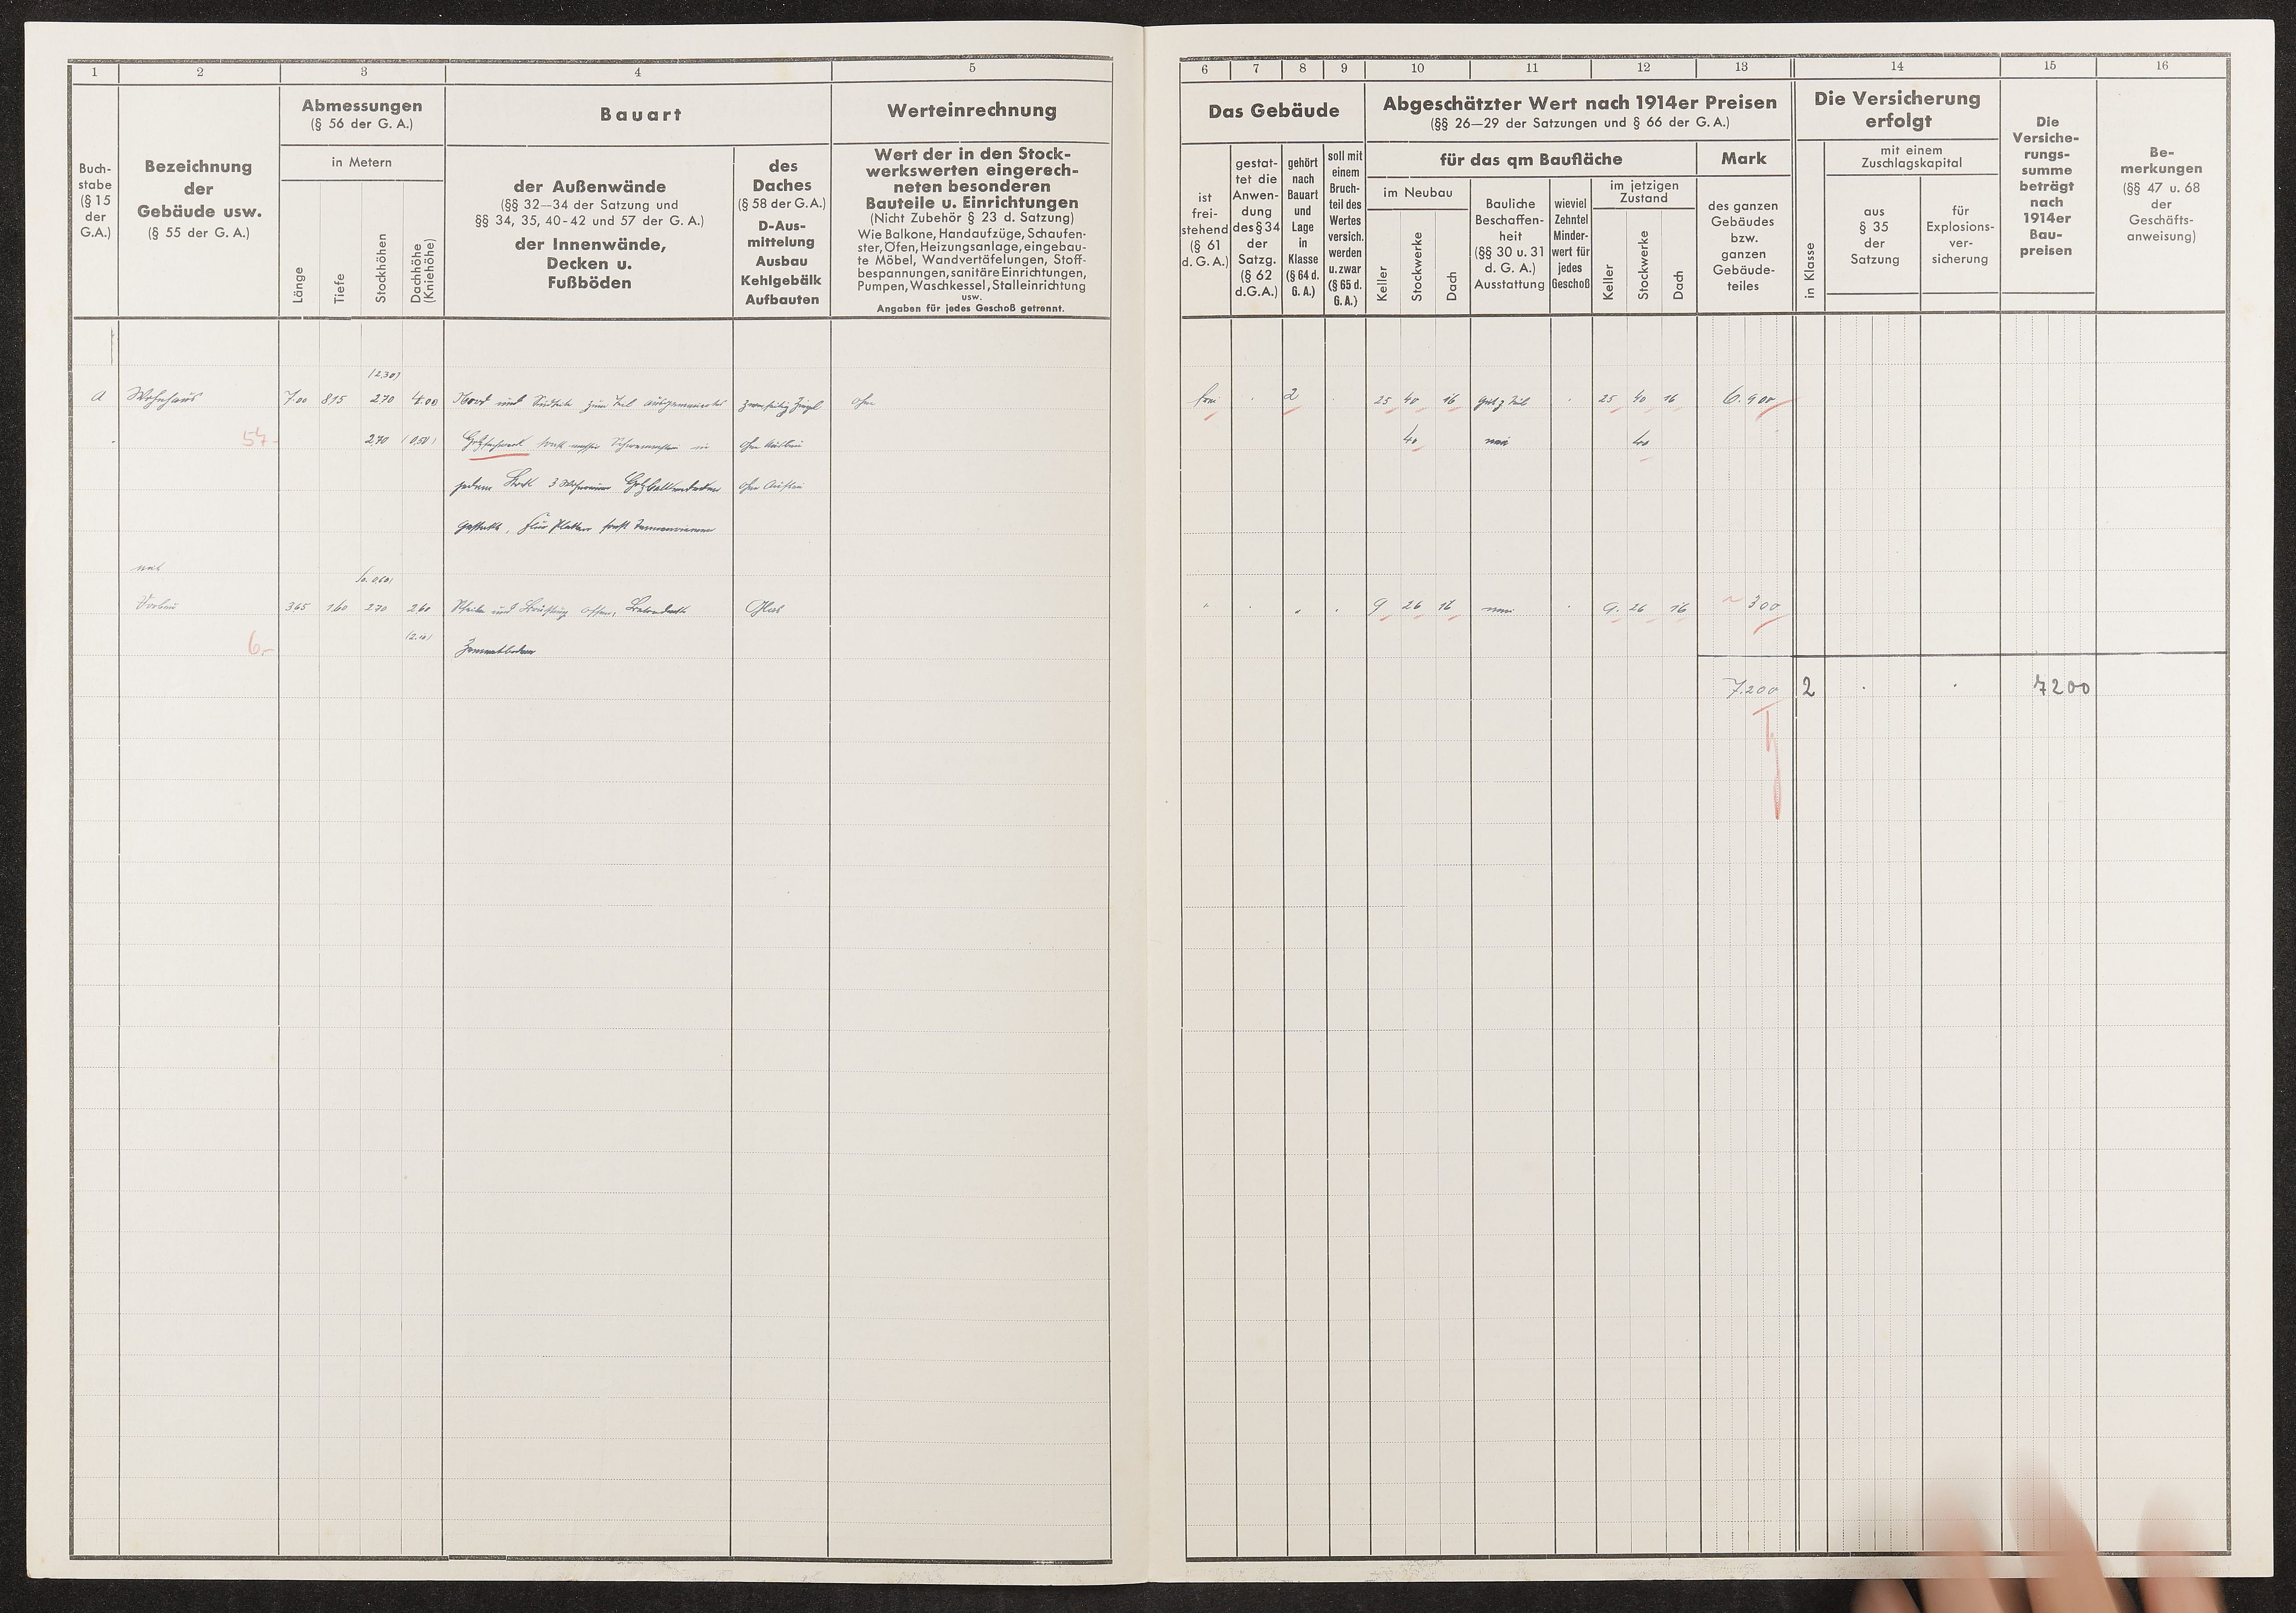 1 2 3 4 5
Buch-
stabe
(§ 15
der
G.A.)
Bezeichnung
der
Gebäude usw.
(§ 55 der G. A.)
Abmessungen
(§ 56 der G. A.)
in Metern
Länge
Tiefe
Stockhöhen
Dachhöhe
(Kniehöhe)
Bauart
der Außenwände
(§§ 32—34 der Satzung und
§§ 34, 35, 40-42 und 57 der G. A.)
der Innenwände,
Decken u.
Fußböden
des
Daches
(§ 58 der G.A.)
D-Aus-
mittelung
Ausbau
Kehlgebälk
Aufbauten
Werteinrechnung
Wert der in den Stock-
werkswerten eingerech-
neten besonderen
Bauteile u. Einrichtungen
(Nicht Zubehör § 23 d. Satzung)
Wie Balkone, Handaufzüge, Schaufen-
ster, Öfen, Heizungsanlage, eingebau-
te Möbel, Wandvertäfelungen, Stoff-
bespannungen, sanitäre Einrichtungen,
Pumpen, Waschkessel, Stalleinrichtung
usw.
Angaben für jedes Geschoß getrennt.
(2.30)
a Wohnhaus 7.00 8.15 2.70 4.00 Nord und Südseite zum Teil ausgemauertes zweiseitig Ziegel ohne
57.- 2.70 (0.50) Holzfachwerk sonst Schwemmstein in ohne Ausbau
jedem Stock 3 Holzbalkendecken
gestückt, Flur Platten sonst Tannenriemen
und
(0.60)
Vorbau 3.65 1.60 2.70 2.60 und Brüstung offen, Glas
6.- (2.10) Zementboden
6 7 8 9 10 11 12 13 14 15 16
Das Gebäude
ist
frei-
stehend
(§ 61
d. G. A.)
gestat-
tet die
Anwen-
dung
des § 34
der
Satzg.
(§ 62
d.G.A.)
gehört
nach
Bauart
und
Lage
in
Klasse
(§ 64 d.
G. A.)
soll mit
einem
Bruch-
teil des
Wertes
versich.
werden
u. zwar
(§ 65 d.
G. A.)
Abgeschätzter Wert nach 1914er Preisen
(§§ 26—29 der Satzungen und § 66 der G. A.)
für das qm Baufläche
im Neubau
Keller
Stockwerke
Dach
Bauliche
Beschaffen-
heit
(§§ 30 u. 31
d. G. A.)
Ausstattung
wieviel
Zehntel
Minder-
wert für
jedes
Geschoß
im jetzigen
Zustand
Keller
Stockwerke
Dach
Mark
des ganzen
Gebäudes
bzw.
ganzen
Gebäude-
teiles
Die Versicherung
erfolgt
in Klasse
mit einem
Zuschlagskapital
aus
§ 35
der
Satzung
für
Explosions-
ver-
sicherung
Die
Versiche-
rungs-
summe
beträgt
nach
1914er
Bau-
preisen
Be-
merkungen
(§§ 47 u. 68
der
Geschäfts-
anweisung)
frei . 2 . 25 40 16 gut z Teil . 25 40 16 6.900
40 neu 40
" . " . 9 26 16 neu . 9. 26 16 ~ 300
7.200 2 . . 7200